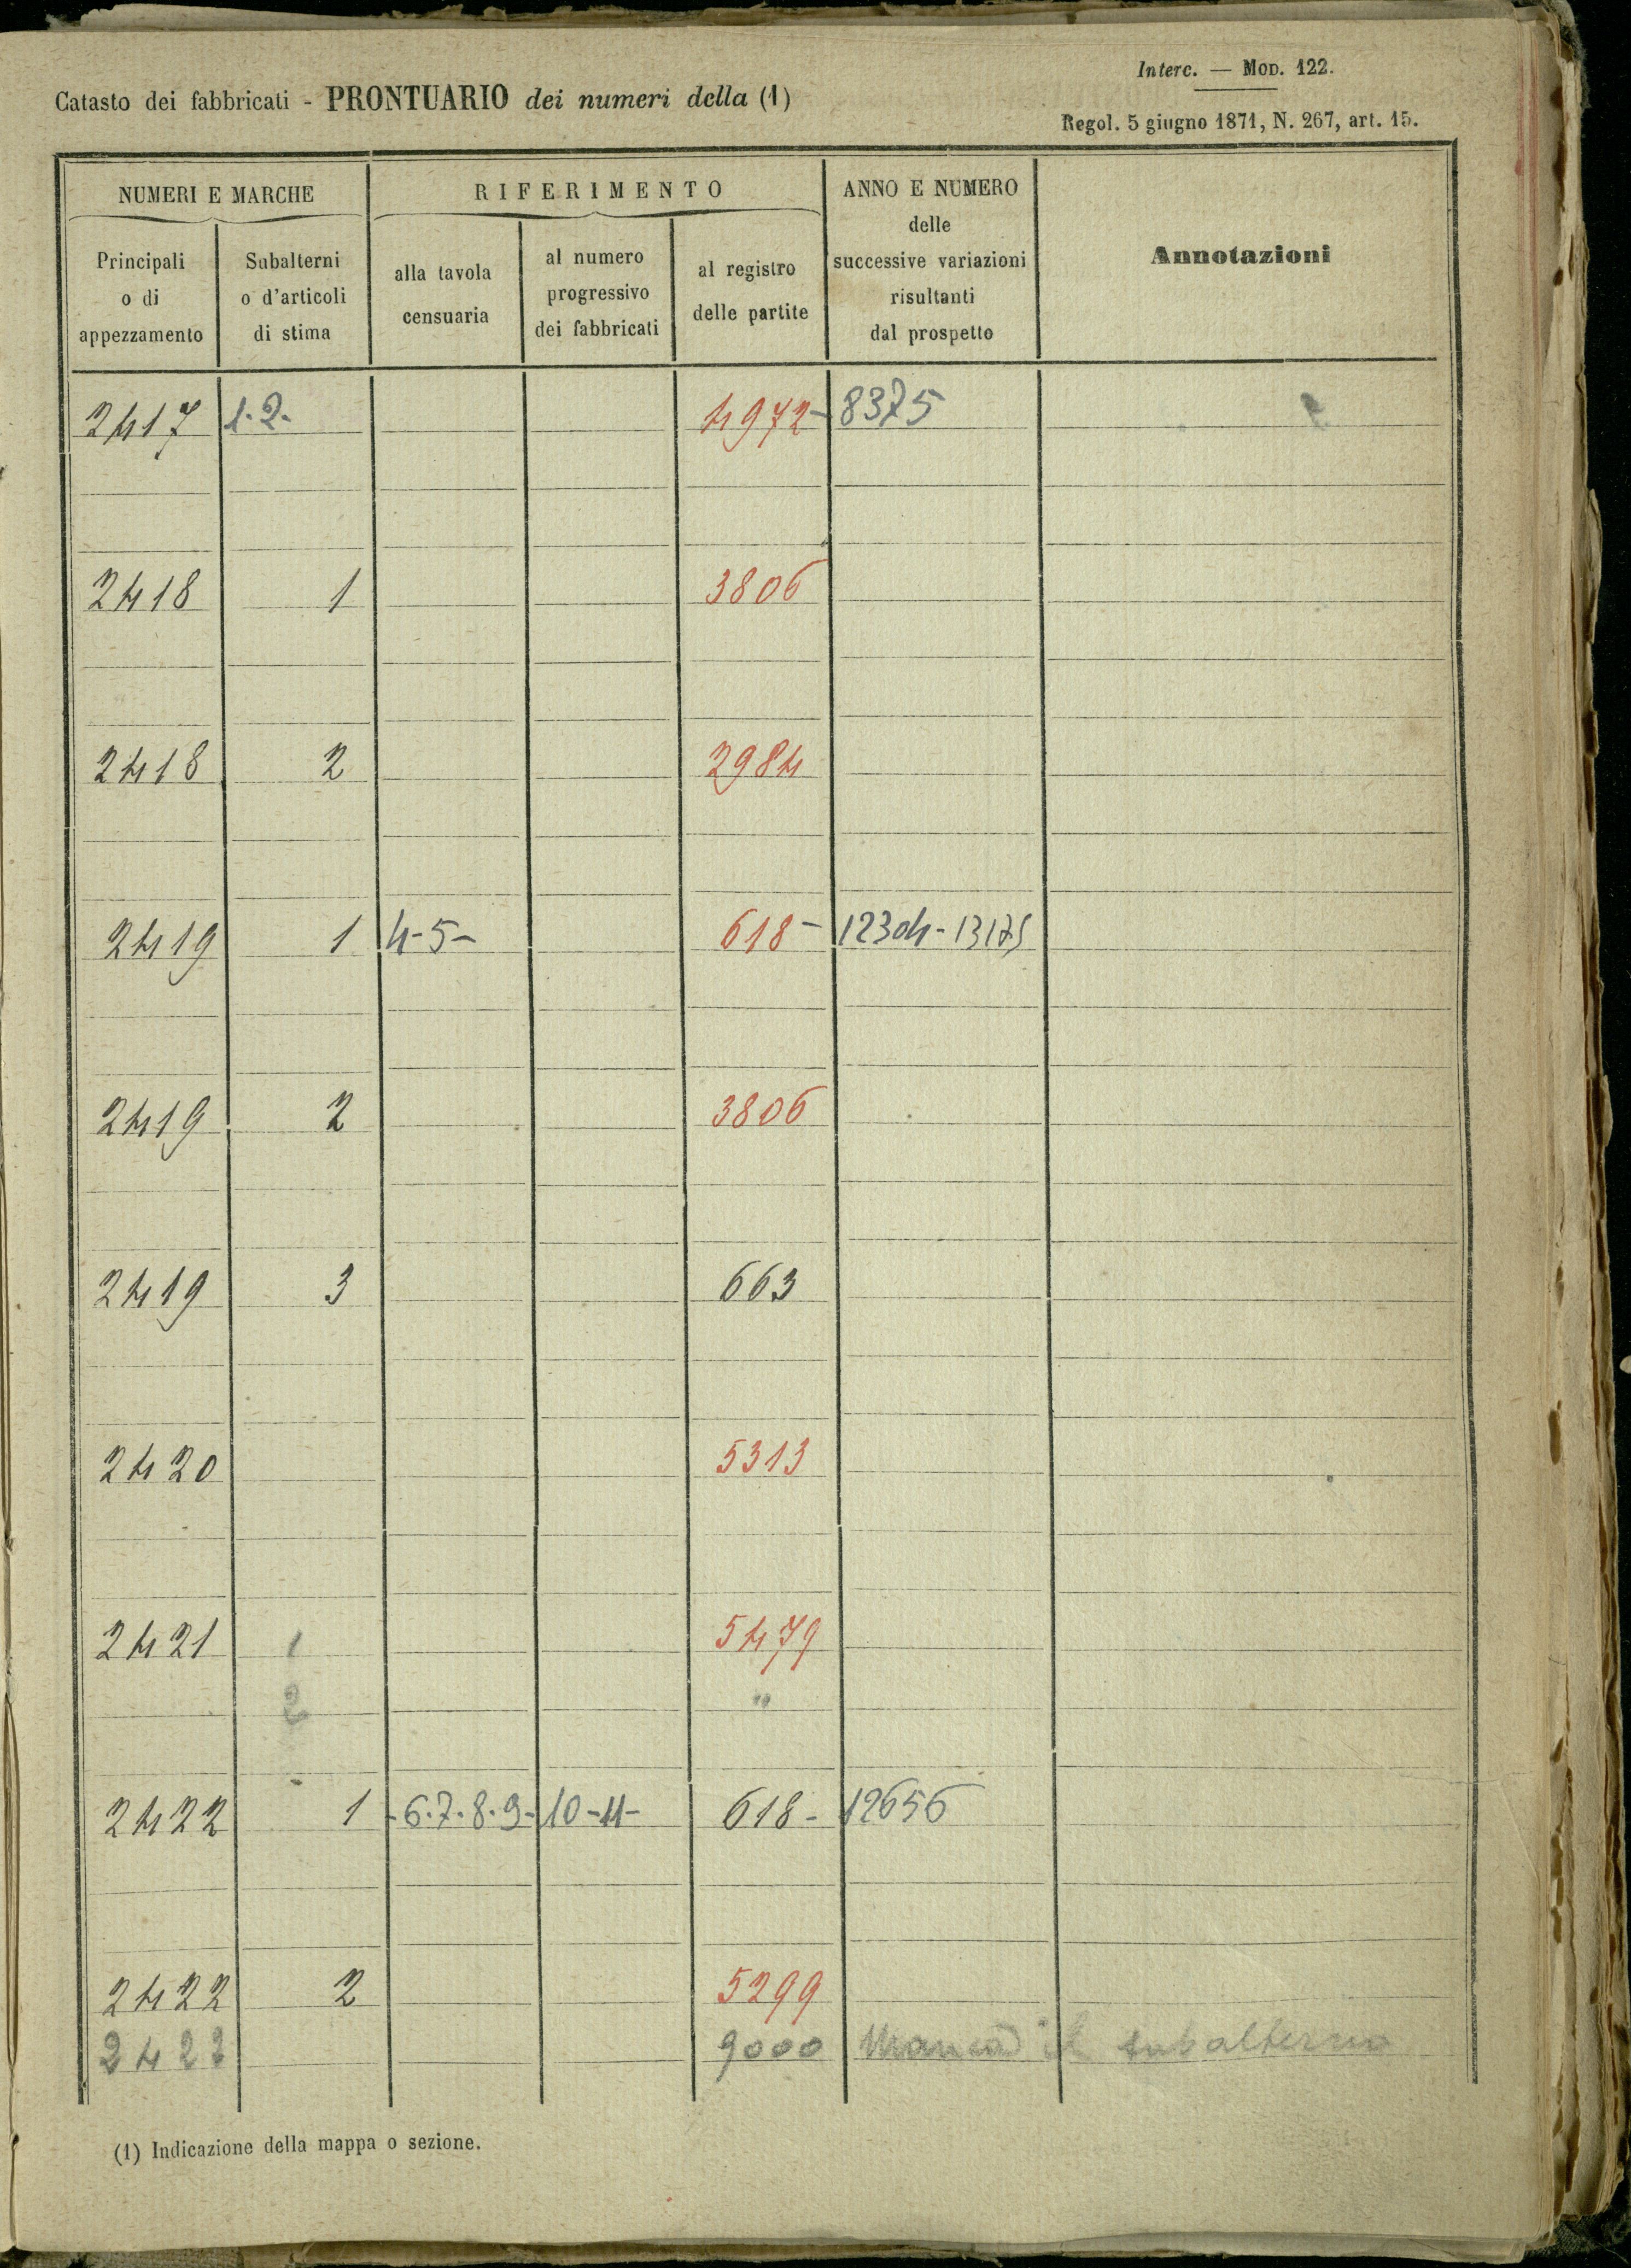 Interc. — MOD. 122.
Catasto dei fabbricati - PRONTUARIO dei numeri della (1)
Regol. 5 giugno 1871, N. 267, art. 15.
NUMERI E MARCHE
RIFERIMENTO
ANNO E NUMERO
delle
successive variazioni
risultanti
dal prospetto
Annotazioni
Principali
o di
appezzamento
Subalterni
o d'articoli
di stima
alla tavola
censuaria
al numero
progressivo
dei fabbricati
al registro
delle partite
2417 1.2. 4972- 8375
2418 1 3806
2418 2 2984
2419 1 4-5- 618- 12304-13175
2419 2 3806
2419 3 663
2420 5313
2421 1 5479
2 "
2422 1 -6.7.8.9-10-11- 618- 12656
2422 2 5299
2422 9000 Manca il subalterno
(1) Indicazione della mappa o sezione.